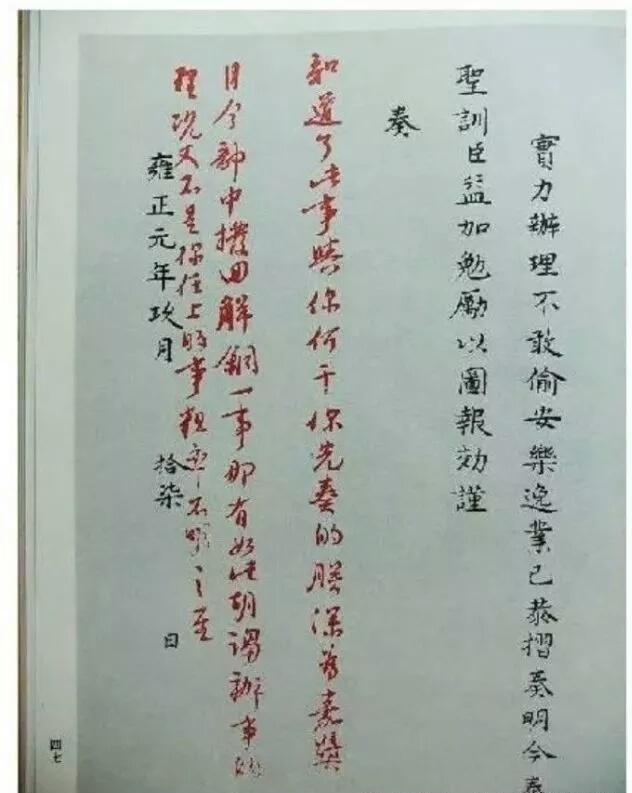 實力辦理不敢偷安樂逸業已恭摺奏明今奉
聖訓臣益加勉勵以圖報効謹
奏
知道了此事與你何干你先奏的朕深為嘉獎
目今部中撥回解銅一事那有如此胡謅辦事的
理況又不是你任上的事粗率不之至
雍正元年玖月 拾柒 日
四七